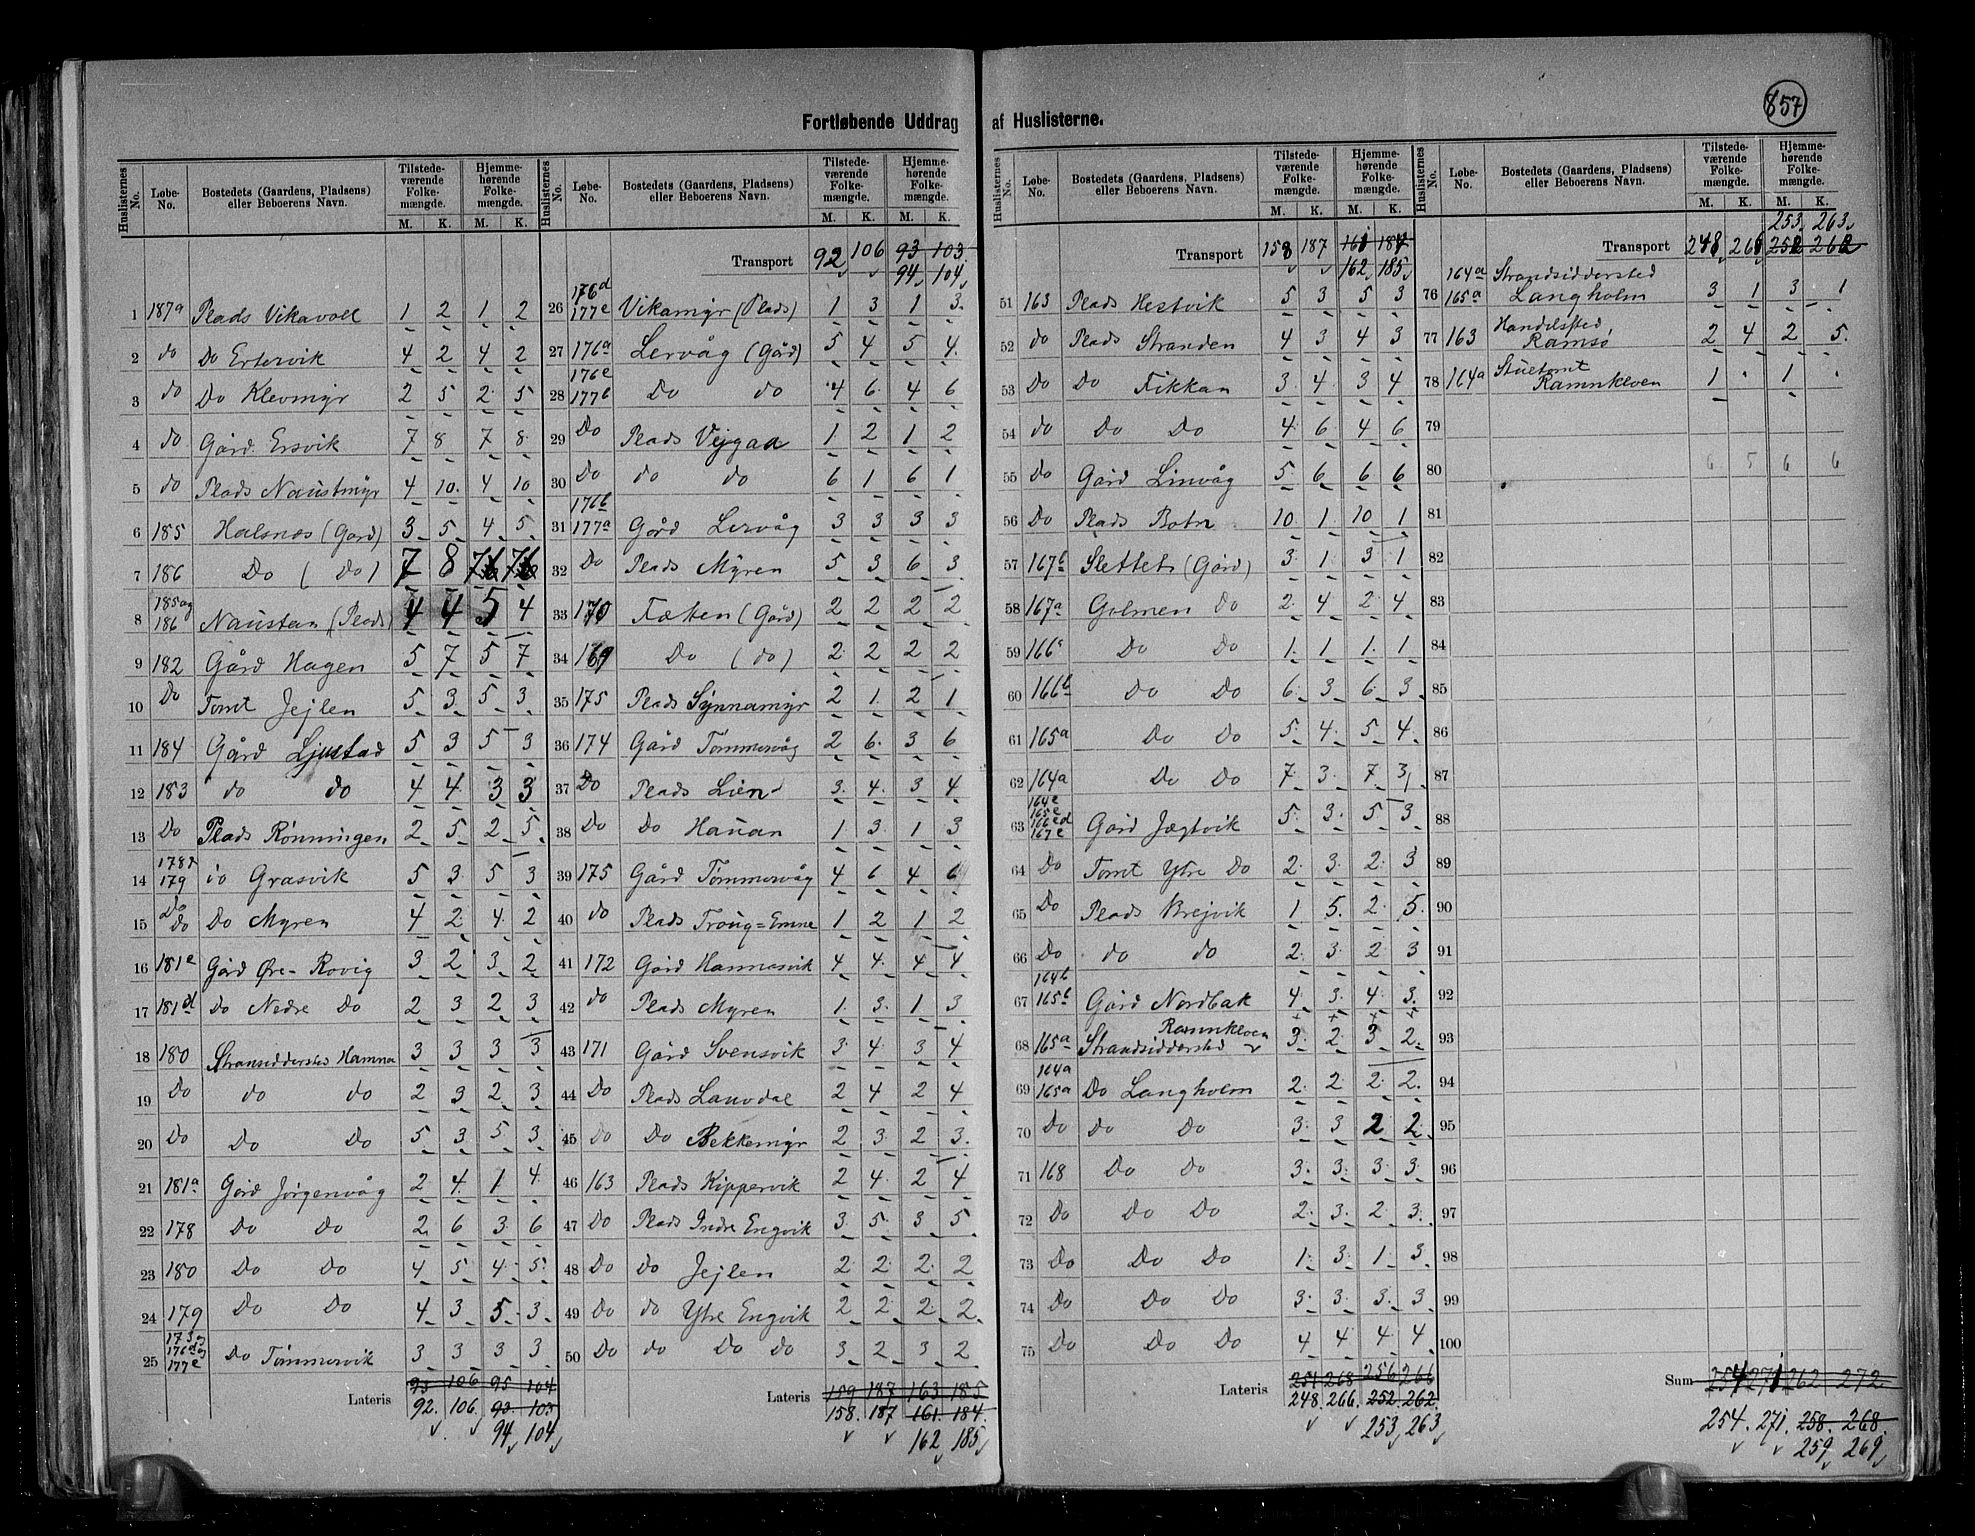 857
Fortløbende Uddrag af Huslisterne.
Huslisternes No. Løbe-No. Bostedets (Gaardens, Pladsens) eller Beboerens Navn. Tilstedeværende Folkemængde. M. K. Hjemmehørende Folkemængde. M. K.
1 187a Plads Vikavoll 1 2 1 2
2 do Do Ertervik 4 2 4 2
3 do Do Klevmyr 2 5 2 5
4 do Gård Ersvik 7 8 7 8
5 do Plads Naustmyr 4 10 4 10
6 185 Halsnes (Gård) 3 5 4 5
7 186 Do (Do) 7 8
8 185 og 186 Naustan (Plads) 4 4 5 4
9 182 Gård Hagen 5 7 5 7
10 Do Tomt Jejlen 5 3 5 3
11 184 Gård Ljustad 5 3 5 3
12 183 do do 4 4 3 3
13 Do Plads Rønningen 2 5 2 5
14 178 179 Grasvik 5 3 5 3
15 Do Do Do Myren 4 2 4 2
16 181e Gård Øre-Rovig 3 2 3 2
17 181d Do Nedre Do 2 3 2 3
18 180 Stransiddersted Hamna 3 3 3 3
19 Do do do 2 3 2 3
20 Do Do Do 5 3 5 3
21 181a Gård Jørgenvåg 2 4 1 4
22 178 Do Do 2 6 3 6
23 180 Do Do 4 5 4 5
24 179 Do Do 4 3 5 3
25 173 176d 177e Do Tømmervik 3 3 3 3
Lateris 93 106 95 104
92. 106. 93. 103
94 104
Transport 92 106 93 103
94 104
26 176d 177c Vikamyr (Plads) 1 3 1 3
27 176a Lervåg (Gård) 5 4 5 4
28 176e 177b Do do 4 6 4 6
29 Do Plads Vejgaa 1 2 1 2
30 Do do do 6 1 6 1
31 176b 177a Gård Lervåg 3 3 3 3
32 Do Plads Myren 5 3 6 3
33 170 Fætten (Gård) 2 2 2 2
34 169 Do (do) 2 2 2 2
35 175 Plads Synnamyr 2 1 2 1
36 174 Gård Tømmervåg 2 6 3 6
37 Do Plads Lien 3 4 3 4
38 Do Do Hauan 1 3 1 3
39 175 Gård Tømmervåg 4 6 4 6
40 do Plads Troug=Emne 1 2 1 2
41 172 Gård Hannesvik 4 4 4 4
42 do Plads Myren 1 3 1 3
43 171 Gård Svensvik 3 4 3 4
44 Do Plads Lauvdal 2 4 2 4
45 do Do Bekkemyr 2 3 2 3
46 163 Plads Kippervik 2 4 2 4
47 Do Plads Indre Engvik 3 5 3 5
48 Do do Jejlen 2 2 2 2
49 Do do Ytre Engvik 2 2 2 2
50 Do do Do do 3 2 3 2
Lateris 159 187 163 185
158. 187 161. 184.
162 185
Huslisternes No. Løbe-No. Bostedets (Gaardens, Pladsens) eller Beboerens Navn. Tilstedeværende Folkemængde. M. K. Hjemmehørende Folkemængde. M. K.
Transport 158 187 161 184
162 185
51 163 Plads Hestvik 5 3 5 3
52 do Plads Stranden 4 3 4 3
53 Do Do Fikkan 3 4 3 4
54 do Do Do 4 6 4 6
55 Do Gård Linvåg 5 6 6 6
56 Do Plads Botn 10 1 10 1
57 167b Slettet (Gård) 3 1 3 1
58 167a Golmen Do 2 4 2 4
59 166c Do Do 1 1 1 1
60 166b Do Do 6 3 6 3
61 165a Do Do 5 4 5 4
62 164a Do Do 7 3 7 3
63 164c 165c 166cd 167c Gård Jægtvik 5 3 5 3
64 Do Tomt Ytre Do 2 3 2 3
65 Do Plads Brejvik 1 5 2 5
66 Do do do 2 3 2 3
67 164b 165b Gård Nordbak 4 3 4 3
68 165a Strandsiddersted Ramnkloen 3 2 3 2
69 164a 165a Do Langholm 2 2 2 2
70 Do Do Do 3 3 2 2
71 168 Do Do 3 3 3 3
72 Do Do Do 2 3 2 3
73 Do Do Do 1 3 1 3
74 Do Do Do 3 3 3 3
75 Do Do Do 4 4 4 4
Lateris 251 268 256 266
248. 266. 252. 262.
253 263
253 263
Transport 248 266 252 262
76 164a 165a Strandsiddersted Langholm 3 1 3 1
77 163 Handelsted, Ramsø 2 4 2 5
78 164a Stuetomt Ramnkloen 1 · 1 ·
79
80 6 5 6 6
81
82
83
84
85
86
87
88
89
90
91
92
93
94
95
96
97
98
99
100
Sum 254 271 262 272
254. 271. 258. 268
259 269